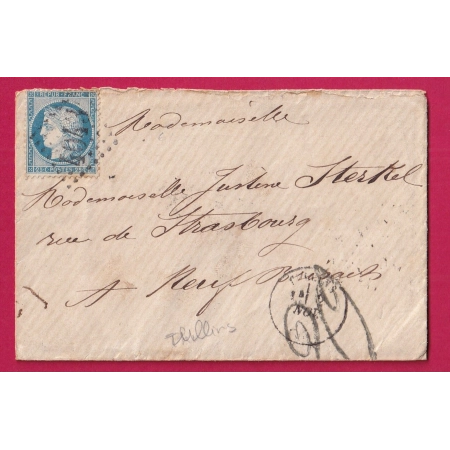 REPUB·FRANC
Mademoiselle
Mademoiselle Justine Sterkel
rue de Strasbourg
A Neuf Brisach
NOV